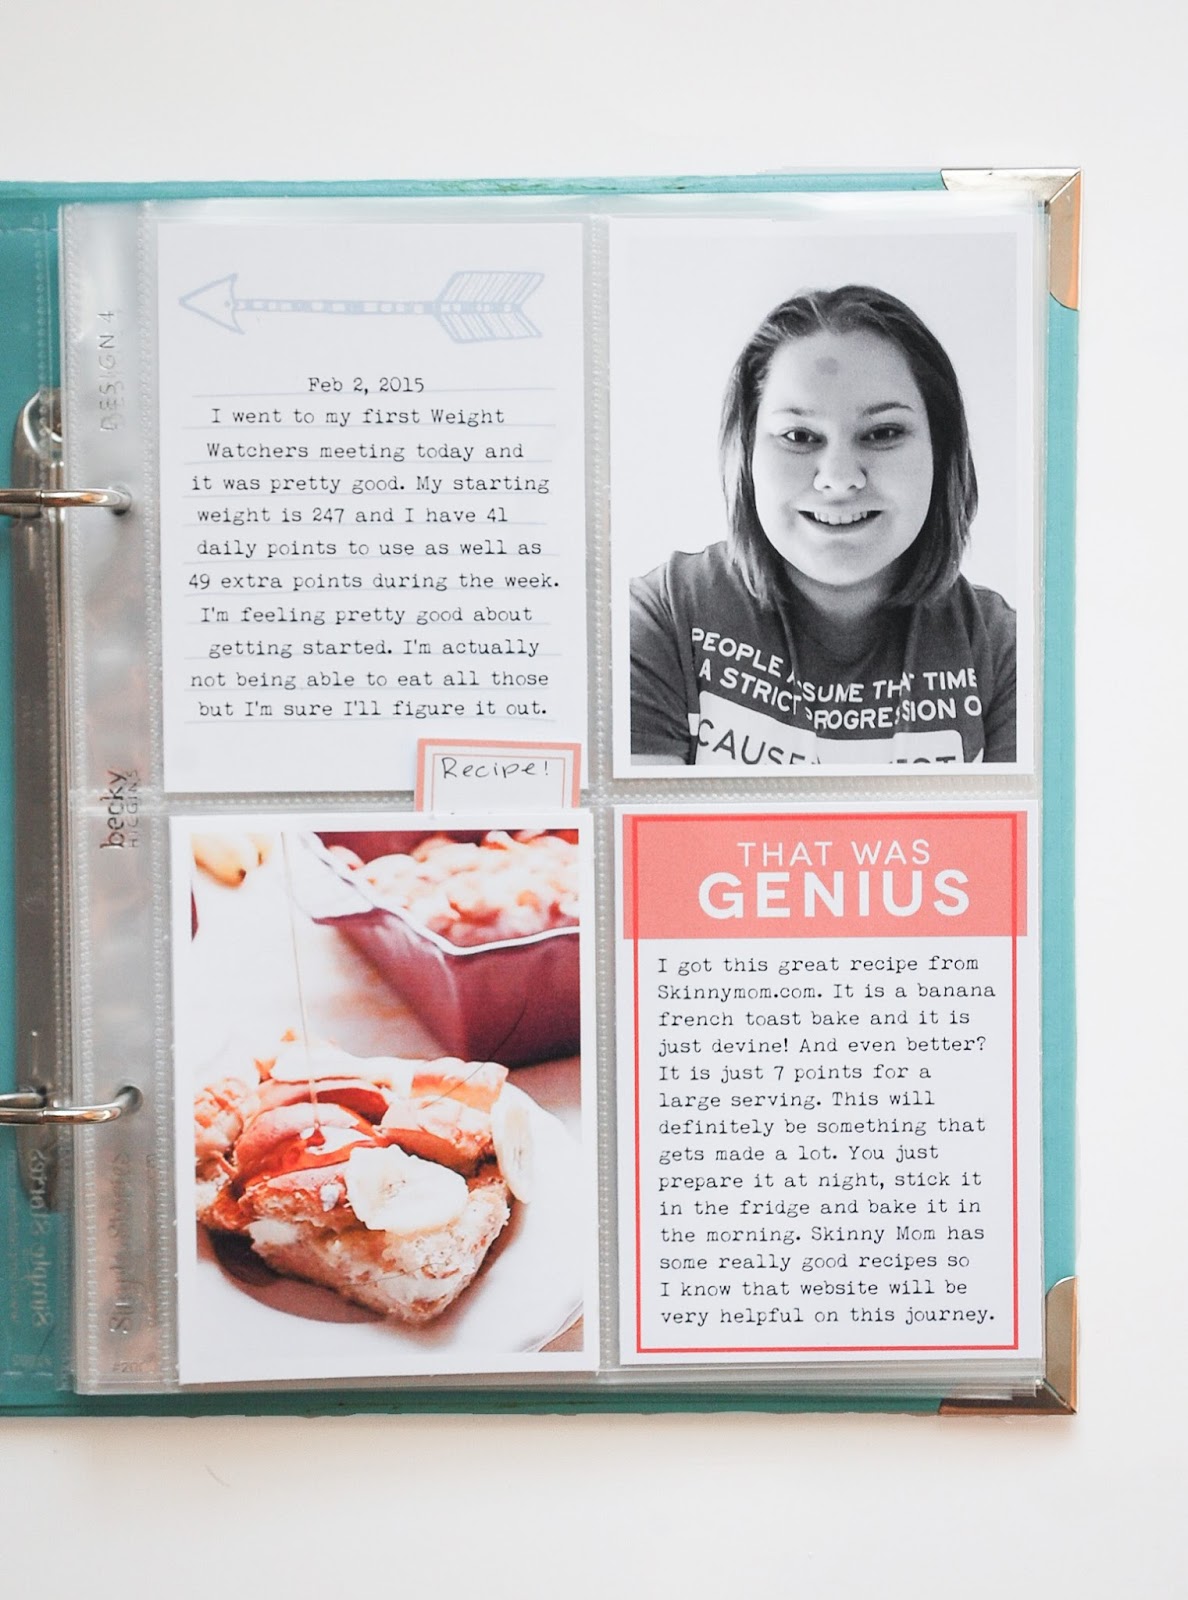 DESIGN 4
Feb 2, 2015
I went to my first Weight
Watchers meeting today and
it was pretty good. My starting
weight is 247 and I have 41
daily points to use as well as
49 extra points during the week.
I'm feeling pretty good about
getting started. I'm actually
not being able to eat all those
but I'm sure I'll figure it out.
PEOPLE ASSUME THAT TIME
A STRICT PROGRESSION O
CAUSE
Recipe!
becky
HIGGINS
THAT WAS
GENIUS
I got this great recipe from
Skinnymom.com. It is a banana
french toast bake and it is
just devine! And even better?
It is just 7 points for a
large serving. This will
definitely be something that
gets made a lot. You just
prepare it at night, stick it
in the fridge and bake it in
the morning. Skinny Mom has
some really good recipes so
I know that website will be
very helpful on this journey.